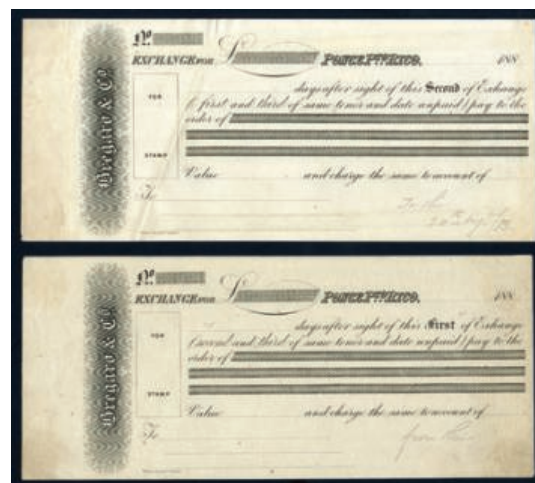 Bregaro & Co.
No
EXCHANGE FOR £ PONCE Pto. RICO, 188
FOR
STAMP
days after sight of this Second of Exchange
( first and third of same tenor and date unpaid ) pay to the
order of
Value and charge the same to account of
To
Bregaro & Co.
No
EXCHANGE FOR £ PONCE Pto. RICO, 188
FOR
STAMP
days after sight of this First of Exchange
( second and third of same tenor and date unpaid ) pay to the
order of
Value and charge the same to account of
To